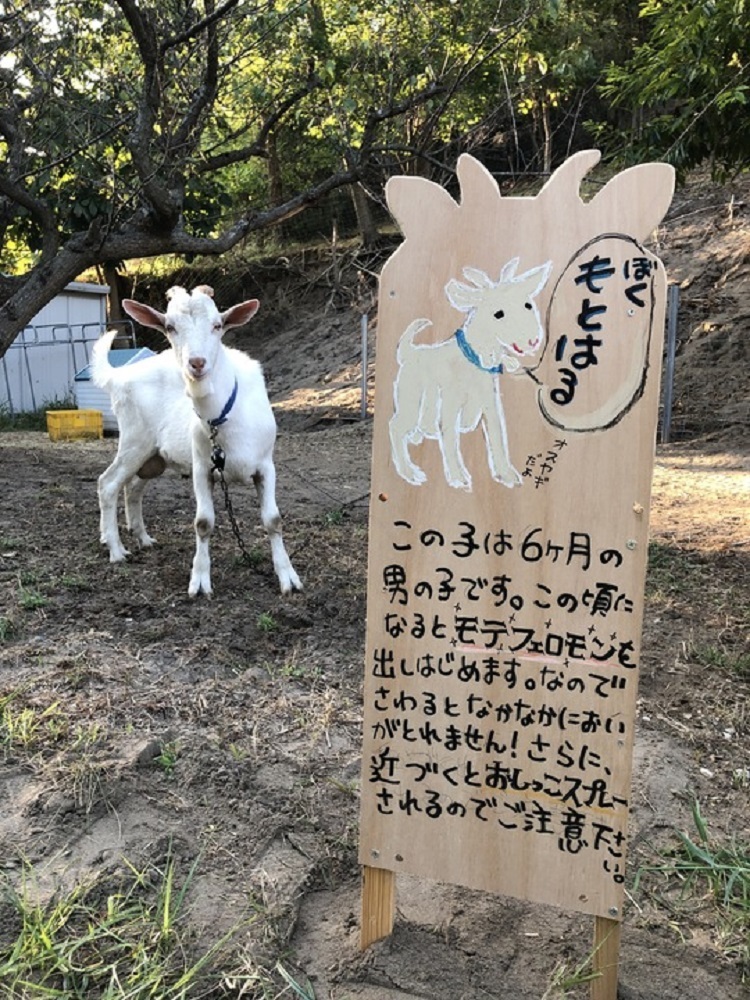 ぼく
もとはる
オスヤギ
だよ
この子は6ヶ月の
男の子です。この頃に
なるとモテフェロモンも
出しはじめます。なので
さわるとなかなかにおい
がとれません！さらに、
近づくとおしっこスプレー
されるのでご注意下さい。